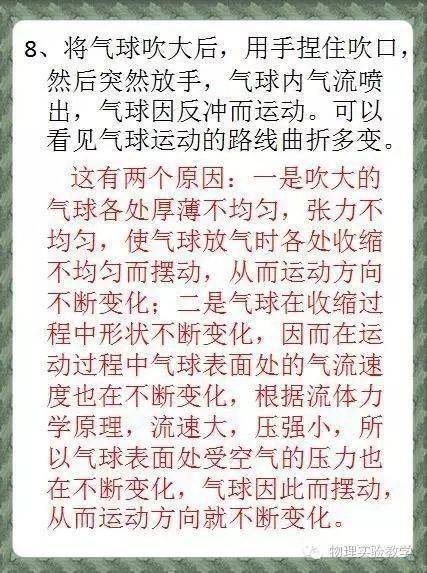 8、将气球吹大后，用手捏住吹口，
然后突然放手，气球内气流喷
出，气球因反冲而运动。可以
看见气球运动的路线曲折多变。
这有两个原因：一是吹大的
气球各处厚薄不均匀，张力不
均匀，使气球放气时各处收缩
不均匀而摆动，从而运动方向
不断变化；二是气球在收缩过
程中形状不断变化，因而在运
动过程中气球表面处的气流速
度也在不断变化，根据流体力
学原理，流速大，压强小，所
以气球表面处受空气的压力也
在不断变化，气球因此而摆动，
从而运动方向就不断变化。
物理实验教学